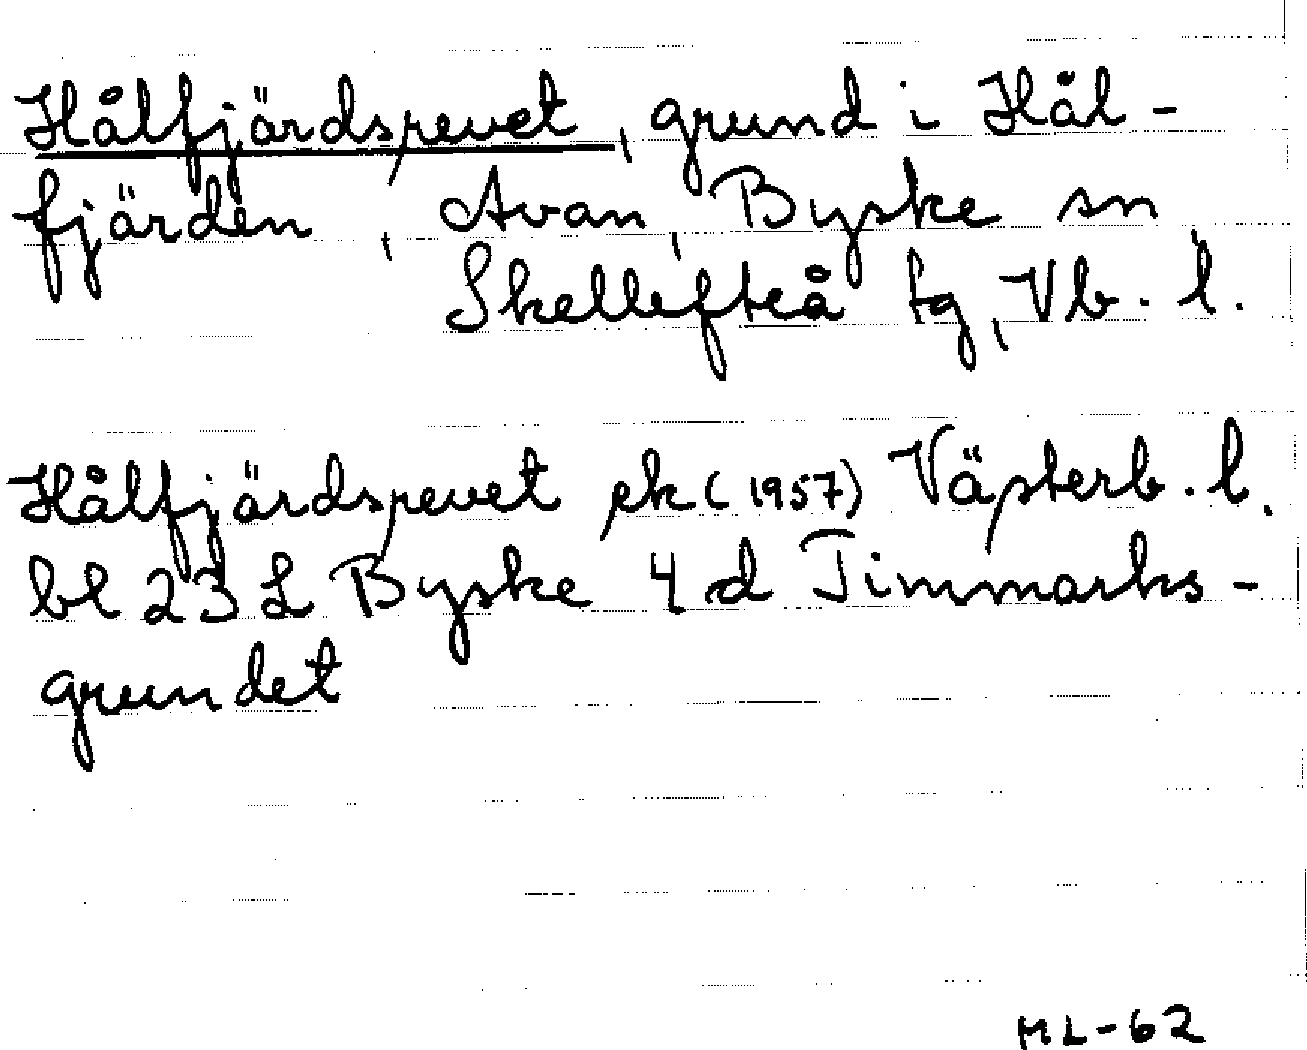 Hålfjärdsrevet, grund i Hål-
fjärden, Avan, Byske sn
Skellefteå tg, Vb. l.
Hålfjärdsrevet ek (1957) Västerb. l.
bl 23 L Byske 4 d Timmarks-
grundet
ML-62